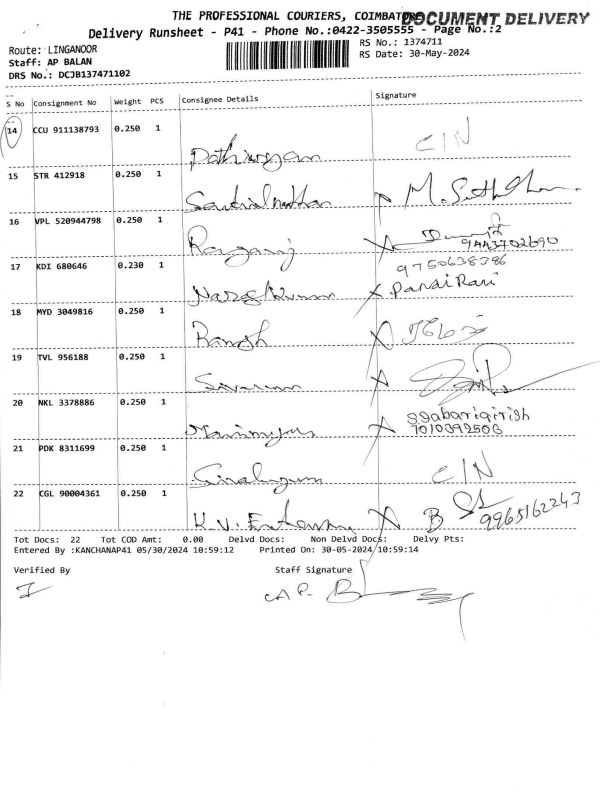 THE PROFESSIONAL COURIERS, COIMBATORE
DOCUMENT DELIVERY
Delivery Runsheet - P41 - Phone No.:0422-3505555 - Page No.:2
Route: LINGANOOR
RS No.: 1374711
Staff: AP BALAN
RS Date: 30-May-2024
DRS No.: DCJB137471102
S No Consignment No Weight PCS Consignee Details Signature
14 CCU 911138793 0.250 1 C/N
15 STR 412918 0.250 1
16 VPL 520944798 0.250 1
9443702690
17 KDI 680646 0.230 1 9750638386
18 MYD 3049816 0.250 1
Ramesh
19 TVL 956188 0.250 1
20 NKL 3378886 0.250 1 SSabarigirish
7010392506
21 PDK 8311699 0.250 1 C/N
22 CGL 90004361 0.250 1 B
9965162243
Tot Docs: 22 Tot COD Amt: 0.00 Delvd Docs: Non Delvd Docs: Delvy Pts:
Entered By :KANCHANAP41 05/30/2024 10:59:12 Printed On: 30-05-2024/10:59:14
Verified By Staff Signature